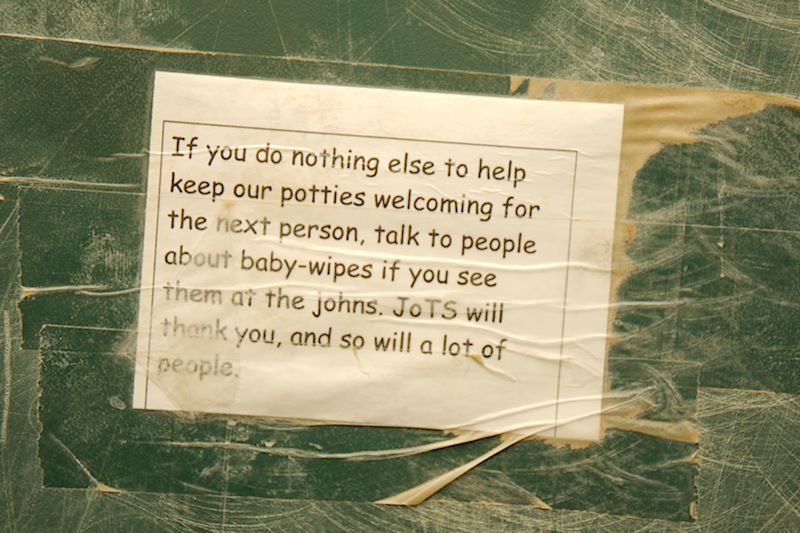 If you do nothing else to help
keep our potties welcoming for
the next person, talk to people
about baby-wipes if you see
them at the johns. JoTS will
thank you, and so will a lot of
people.